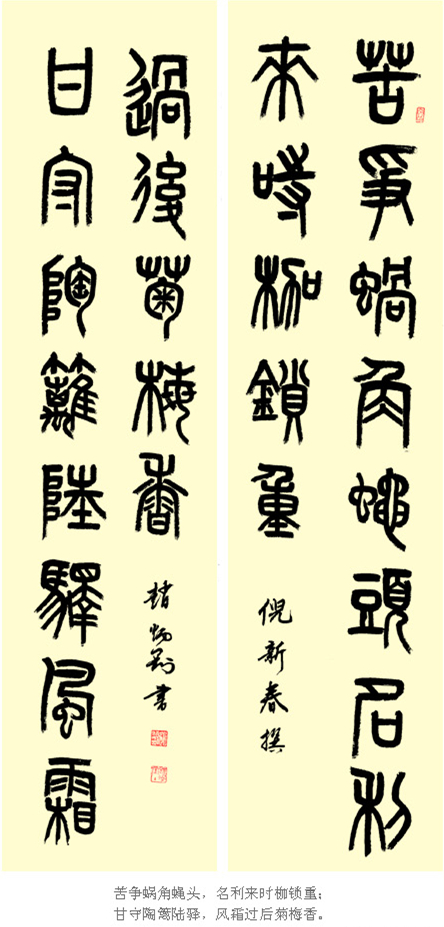 苦爭蝸角蠅頭名利
來時枷鎖重
倪新春撰
甘守陶籬陸驛風霜
過後菊梅香
趙炳書
苦争蜗角蝇头，名利来时枷锁重；
甘守陶篱陆驿，风霜过后菊梅香。